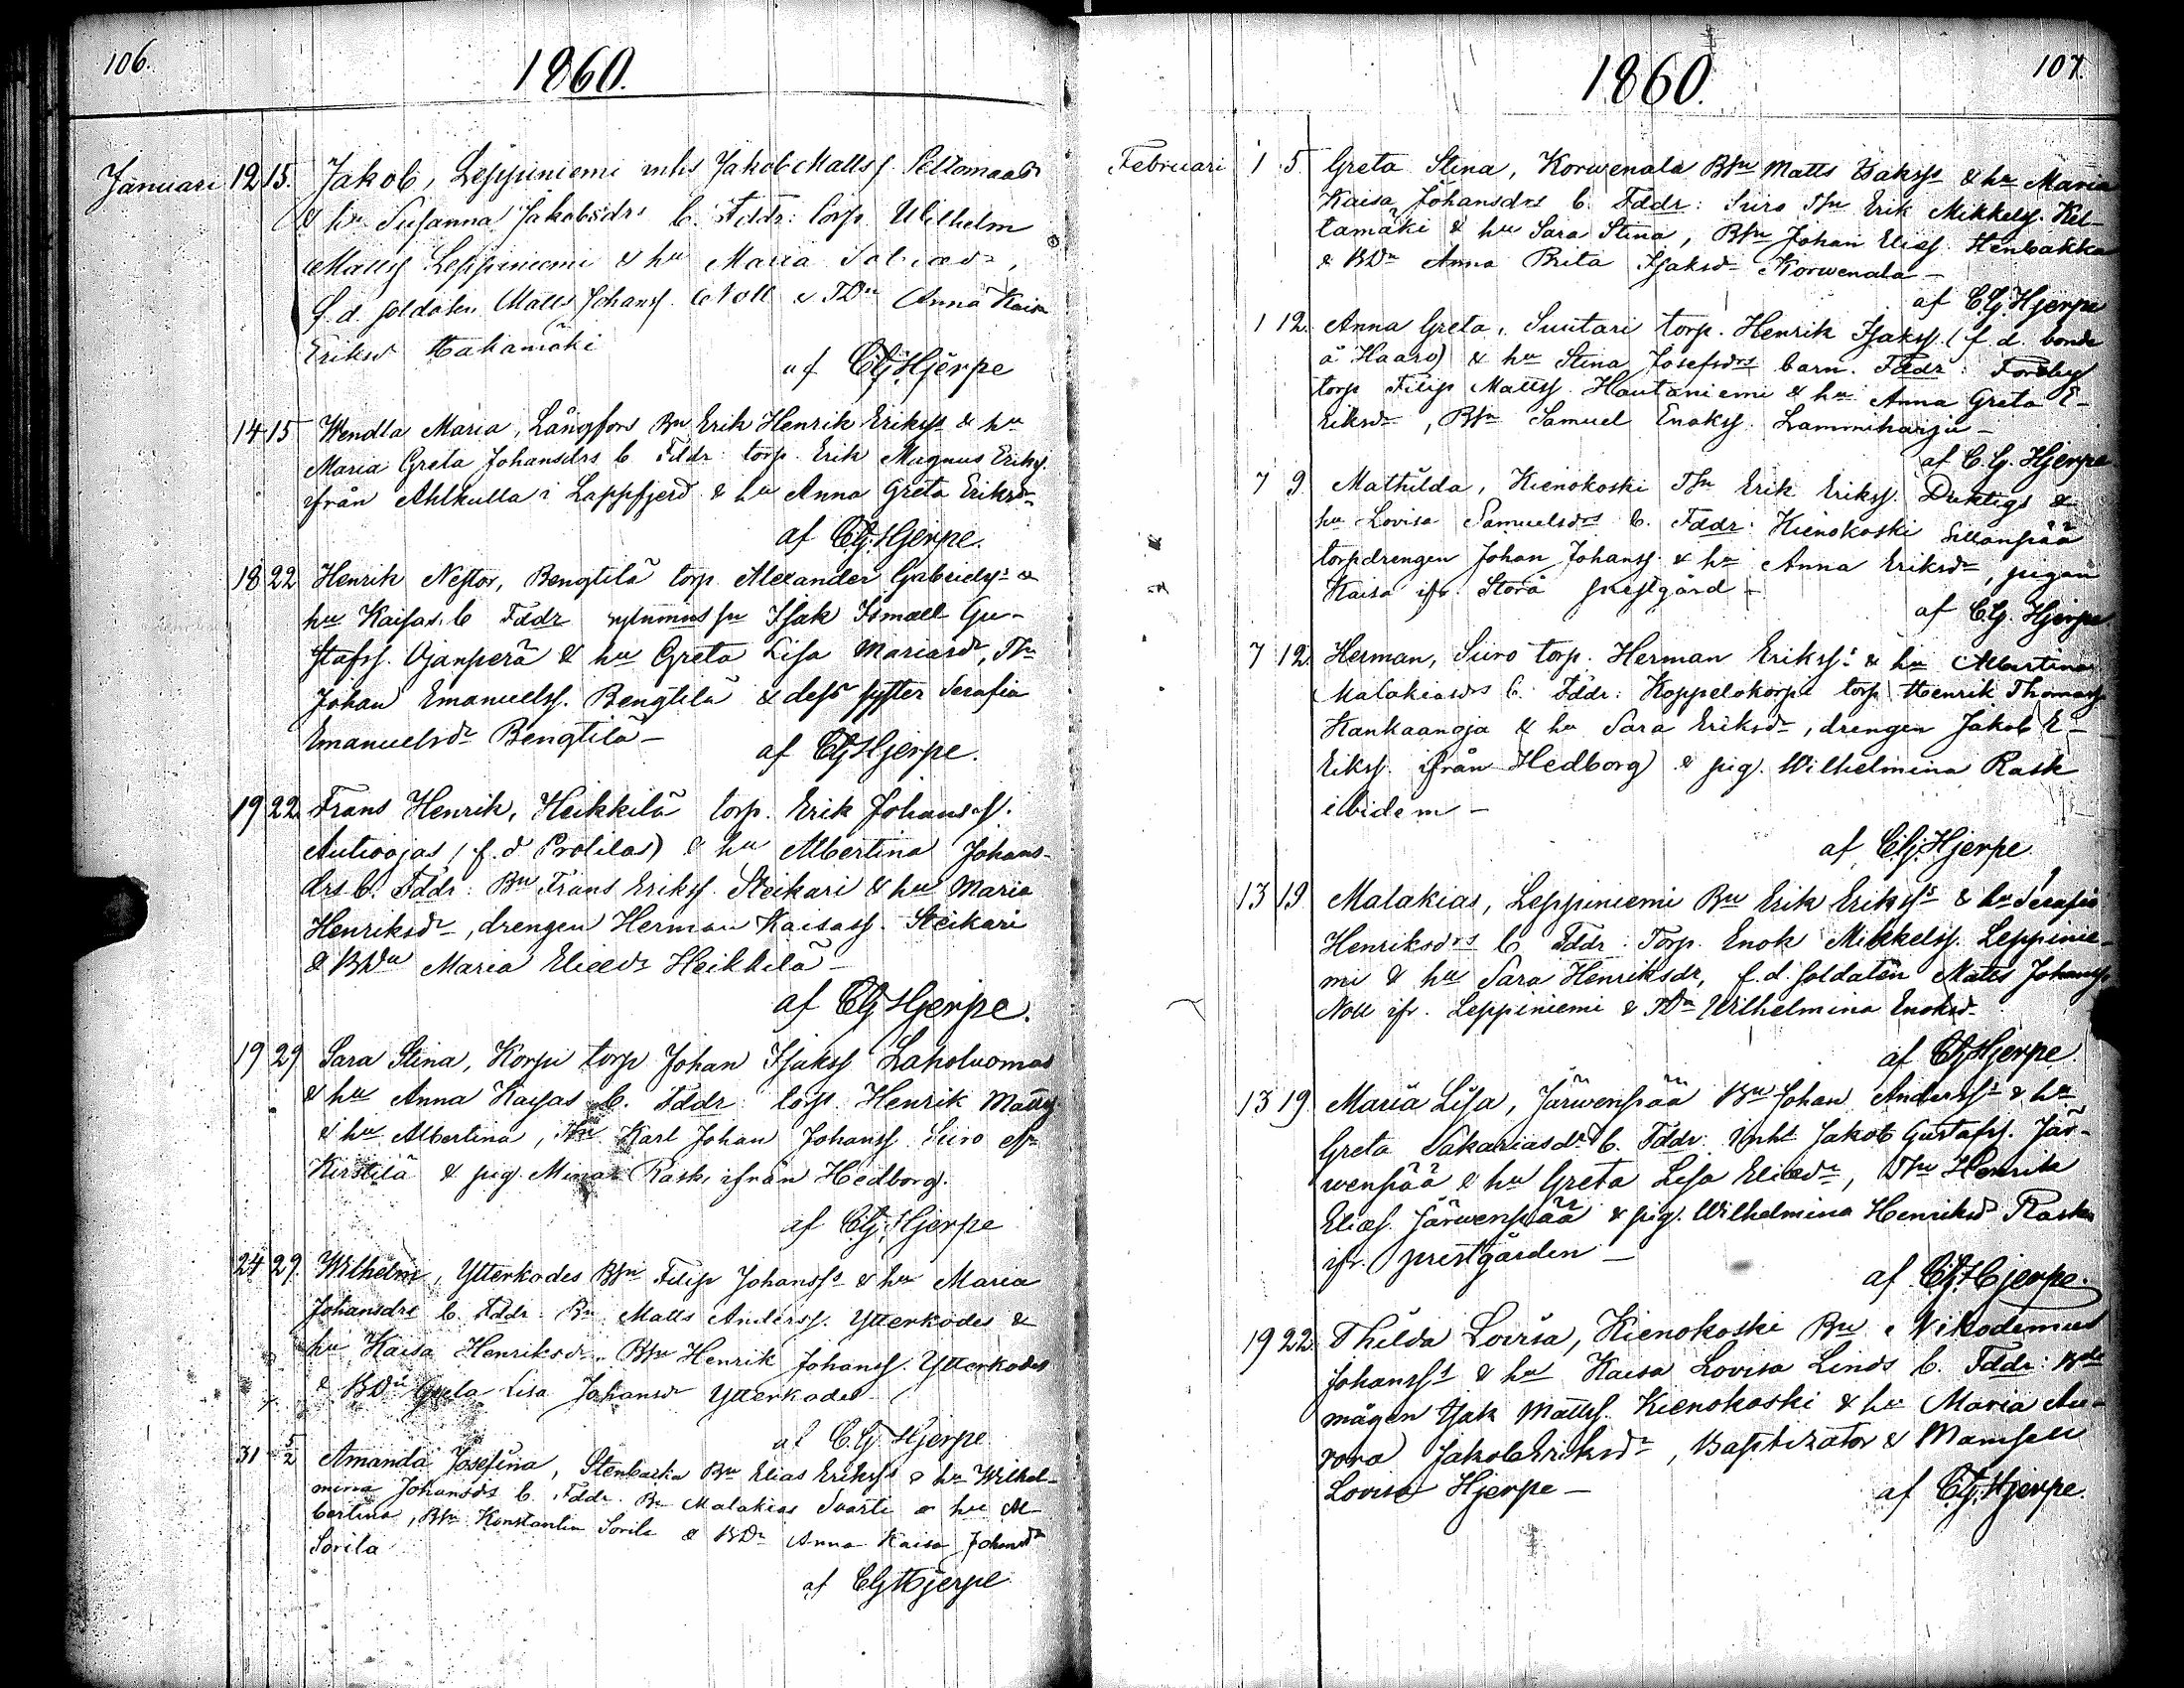 106.
1860.
Januari 12 15. Jakob, Leppiniemi inhs Jakob Mattsș Peltomaas
& hu Susanna Jakobsdrs b. Fddr: torp. Wilhelm
Mattss Leppiniemi & hu Maria
f.d. soldaten Matts Johanss. Noll & TDn Anna Kaisa
Eriksd Hakamäki
af CG Hjerpe
14 15 Wendla Maria, Långfors Bn Erik Henrik Erikss & hu
Maria Greta Johansdrs b. Fddr: torp. Erik Magnus Erikss.
ifrån Ahlkulla i Lappfjerd & hu Anna Greta Eriksdr
af CG. Hjerpe.
18 22 Henrik Nestor, Bengtilä torp. Alexander Gabrielss &
hu Kaisas b. Fddr Isak Ismaël Gu-
stafss. Ojanperä & hu Greta Lisa Mariasdr, TSn
Johan Emanuelss. Bengtilä & dess syster Serafia
Emanuelsdr Bengtilä –
af CG Hjerpe.
19 22. Frans Henrik, Heikkilä torp. Erik Johanss.
Autioojas (f.d Prolilas) & hu Albertina Johans-
drs b. Fddr: Bn Frans Erikss. Steikari & hu Maria
Henriksdr, drengen Herman Kaisass. Steikari
& BDn Maria Eliædr Heikkilä –
af CG Hjerpe.
19 29 Sara Stina, Korpi torp Johan Isakss Laholuomas
& hu Anna Kajsas b. Fddr: torp. Henrik Mattss
& hu Albertina, TSn Karl Johan Johanss Suro
Kirstilä & pig. Mina Rask, ifrån Hedborg.
af CG. Hjerpe
24 29. Wilhelm, Ytterkodes BSn Filip Johanss & hu Maria
Johansdrs b. Fddr: Bn Matts Anderss. Ytterkodes &
hu Kaisa Henriksdr. BSn Henrik Johanss. Ytterkodes
& BDn Greta Lisa Johansdr Ytterkodes
af C.G Hjerpe
31 5/2 Amanda Josefina, Stenbacka Bn Elias Erikss & hu Wilhel-
mina Johansdrs b. Fddr. Bn Malakias Svarti & hu Al-
bertina, BSn Konstantin Sorila & BDn Anna Kaisa Johansdr
Sorila
af CG Hjerpe
107.
1860.
Februari 1 5 Greta Stina, Korwenala BSn Matts Isakss & hu Maria
Kaisa Johansdrs b. Fddr: Suro TSn Erik Mikkelss. Kel-
tamäki & hu Sara Stina, BSn Johan Eliæs. Stenbakka
& BDn Anna Brita Isaksd Korwenala –
af C.G. Hjerpe
1 12. Anna Greta, Suutari torp. Henrik Isakss. (f.d. bonde
å Haaro) & hu Stina Josefsdrs barn. Fddr: Forsby
torp Filip Mattss. Hautaniemi & hu Anna Greta E-
riksdr, BSn Samuel Enokss. Lamminharju –
af C.G. Hjerpe
7 9. Mathilda, Kienokoski TSn Erik Erikss. Duktigs &
hu Lovisa Samuelsdrs b. Fddr: Kienokoski Sillanpää
torpdrengen Johan Johanss. & hu Anna Eriksdr, pigan
Kaisa ifr. Storå prestgård –
af C.G. Hjerpe
7 12. Herman, Suro torp. Herman Erikss & hu Albertina
Malakiasdrs b. Fddr: Koppelokorpi torp. Henrik Thomass
Kankaanoja & hu Sara Eriksdr, drengen Jakob E-
rikss. ifrån Hedborg & pig. Wilhelmina Rask
ibidem –
af CG. Hjerpe.
13 19 Malakias, Leppiniemi Bn Erik Erikss & hu Serafia
Henriksdrs b. Fddr: Torp. Enok Mikkelss. Leppinie-
mi & hu Sara Henriksdr, f.d. soldaten Matts Johanss
Noll ifr. Leppiniemi & TDn Wilhelmina Enoksd
af CG Hjerpe.
13 19 Maria Lisa, Järwenpää Bn Johan Anderss & hu
Greta Sakariasdr b. Fddr: Inhs Jakob Gustafss. Jär-
wenpää & hu Greta Lisa Eliædr, DSn Henrik
Eliæs. Järwenpää & pig. Wilhelmina Henriksd Rask
ifr. prestgården –
af CG. Hjerpe.
19 22. Thilda Lovisa, Kienokoski Bn Nikodemus
Johanss & hu Kaisa Lovisa Linds b. Fddr: Bde
mågen Isak Mattss. Kienokoski & hu Maria Au-
rora Jakob Eriksdr, Baptizator & Mamsell
Lovisa Hjerpe –
af CG. Hjerpe.